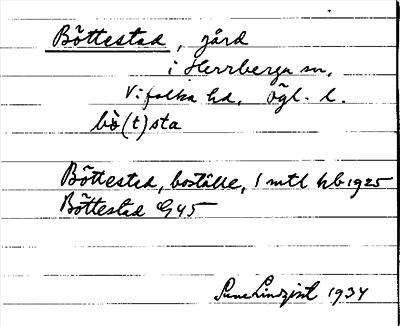 Böttestad, gård
i Herrberga sn,
Vifolka hd, Ögl. l.
bö̀(t)sta
Böttestad, boställe, 1 mtl hb 1925
Böttestad G45
Sune Lindqvist 1934